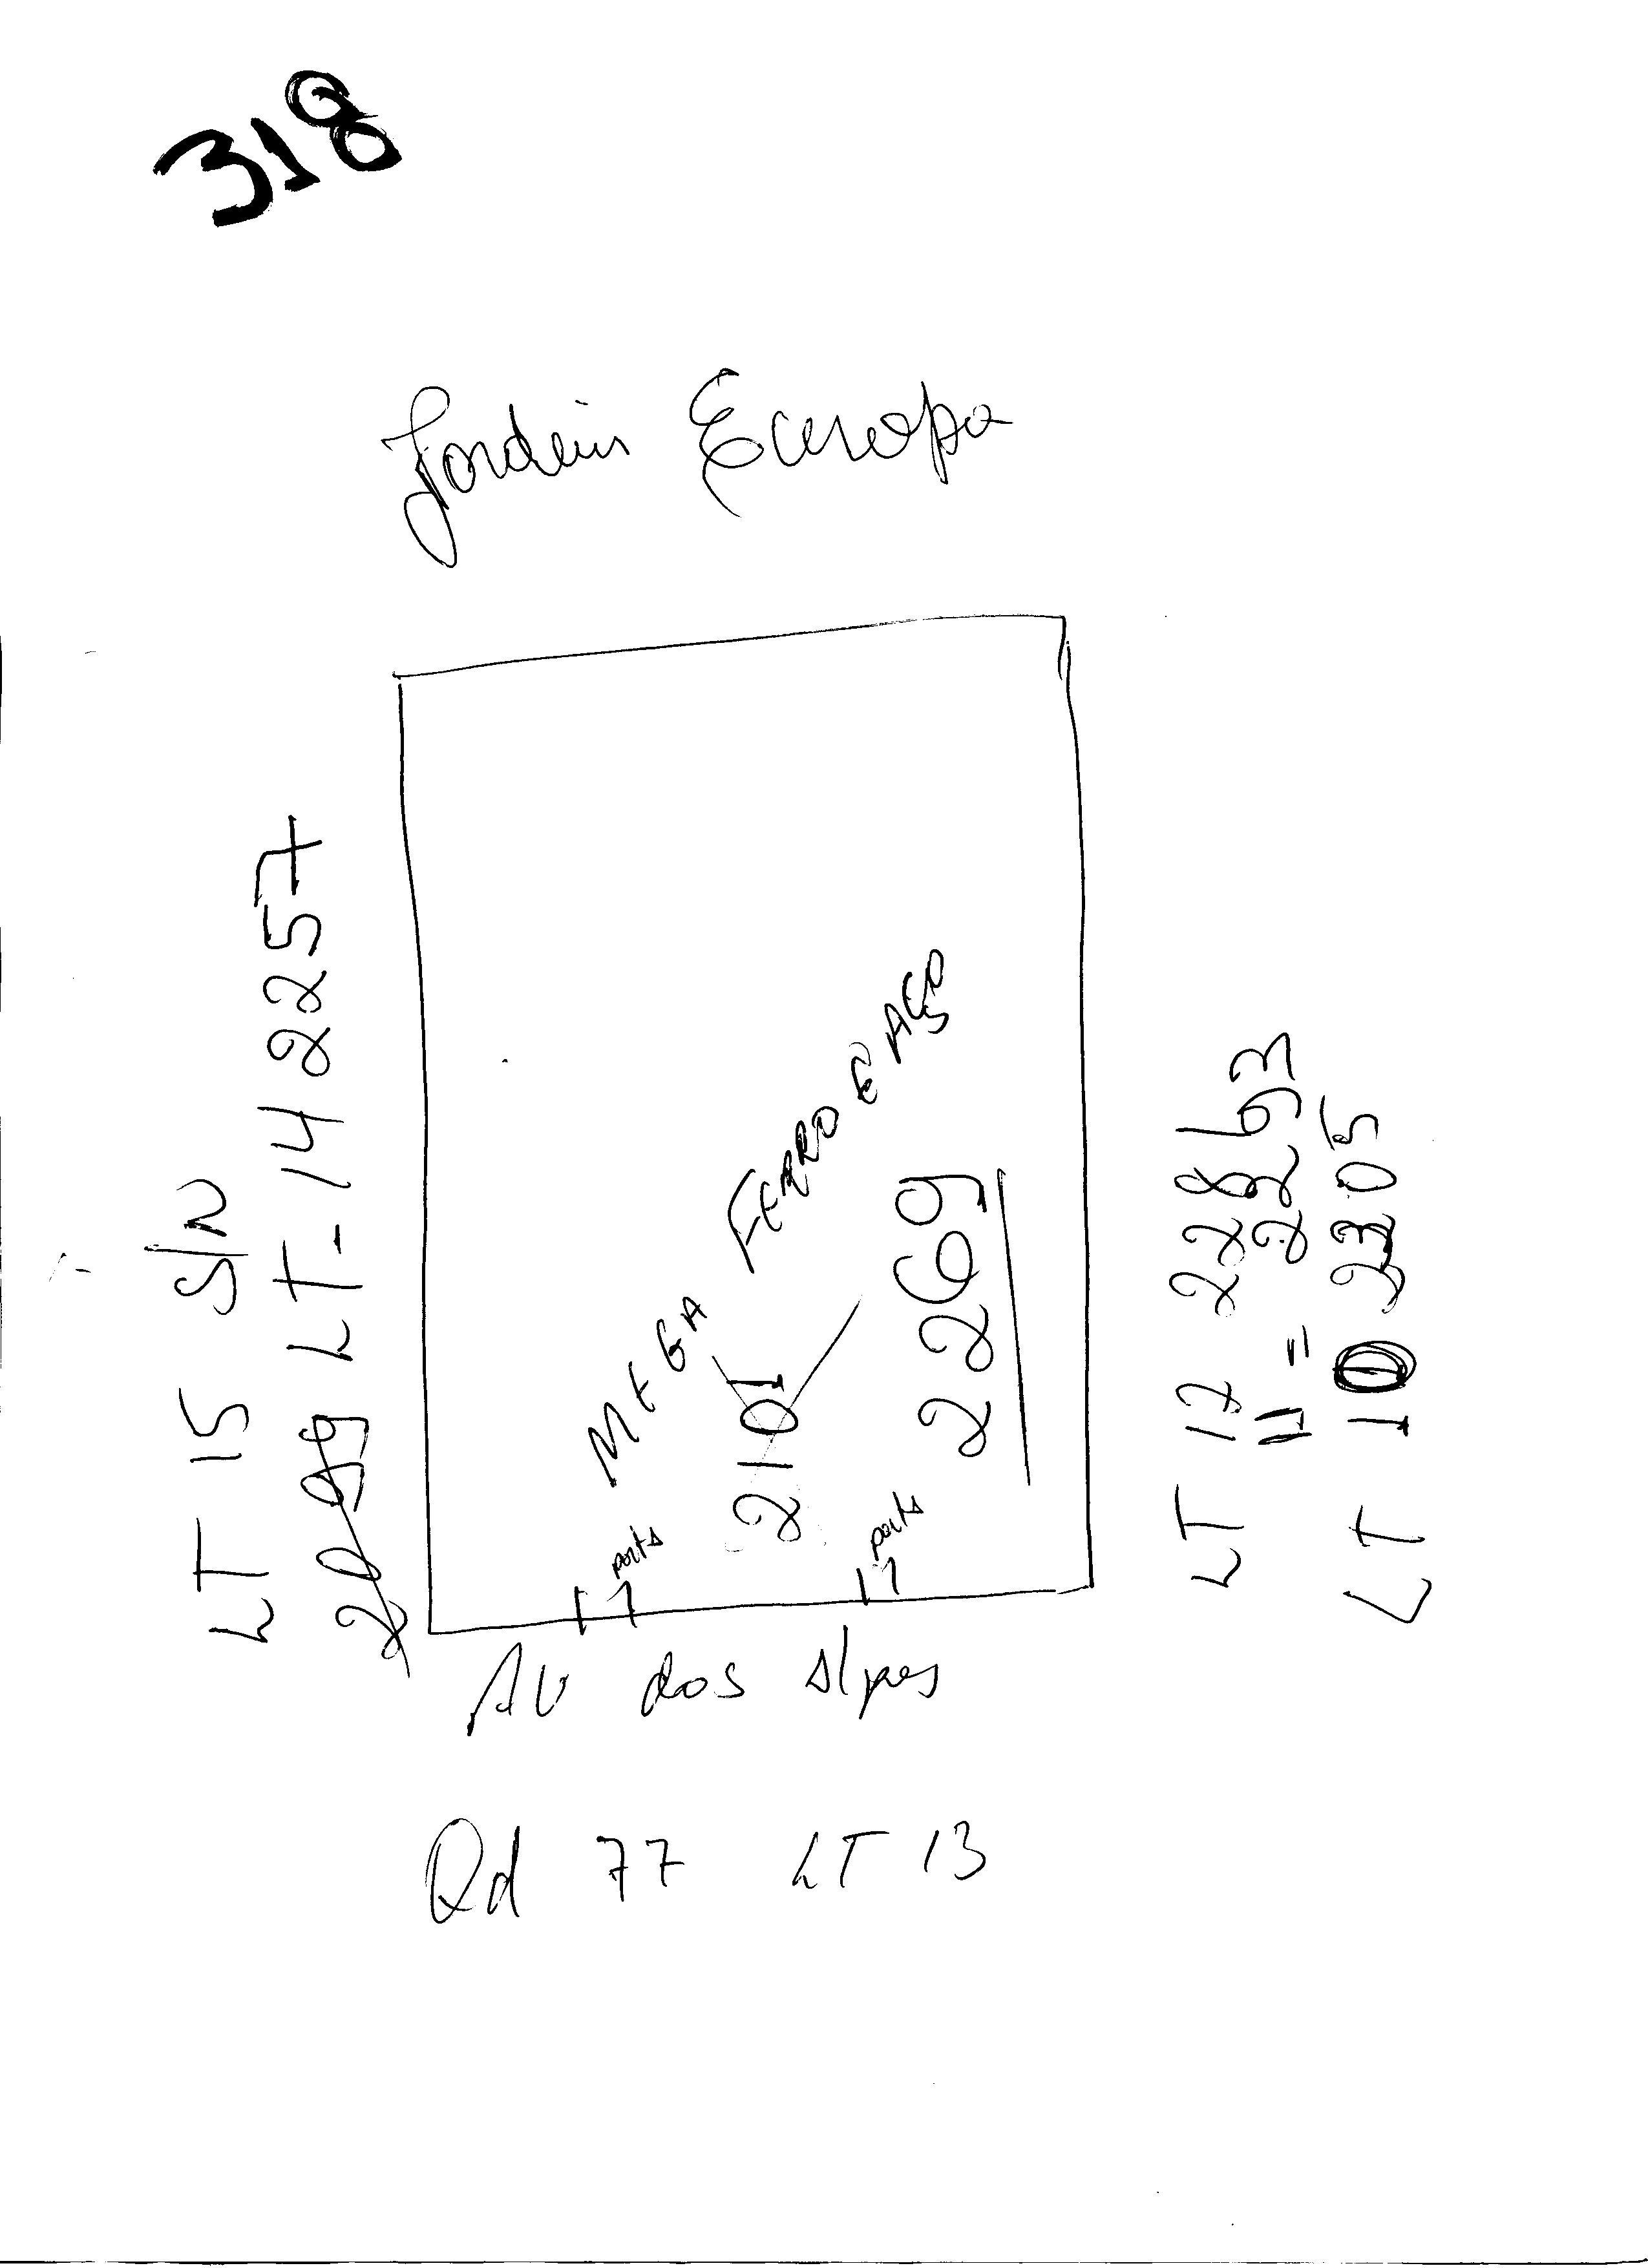 318
Jardim Europa
LT 15 S/N
2099 LT-14 2257
MEGA FERRO E AÇO
2101
2269
LT 12 228
11 = 2293
LT 10 2305
porta
porta
AV dos Alpes
Qd 77 LT 13